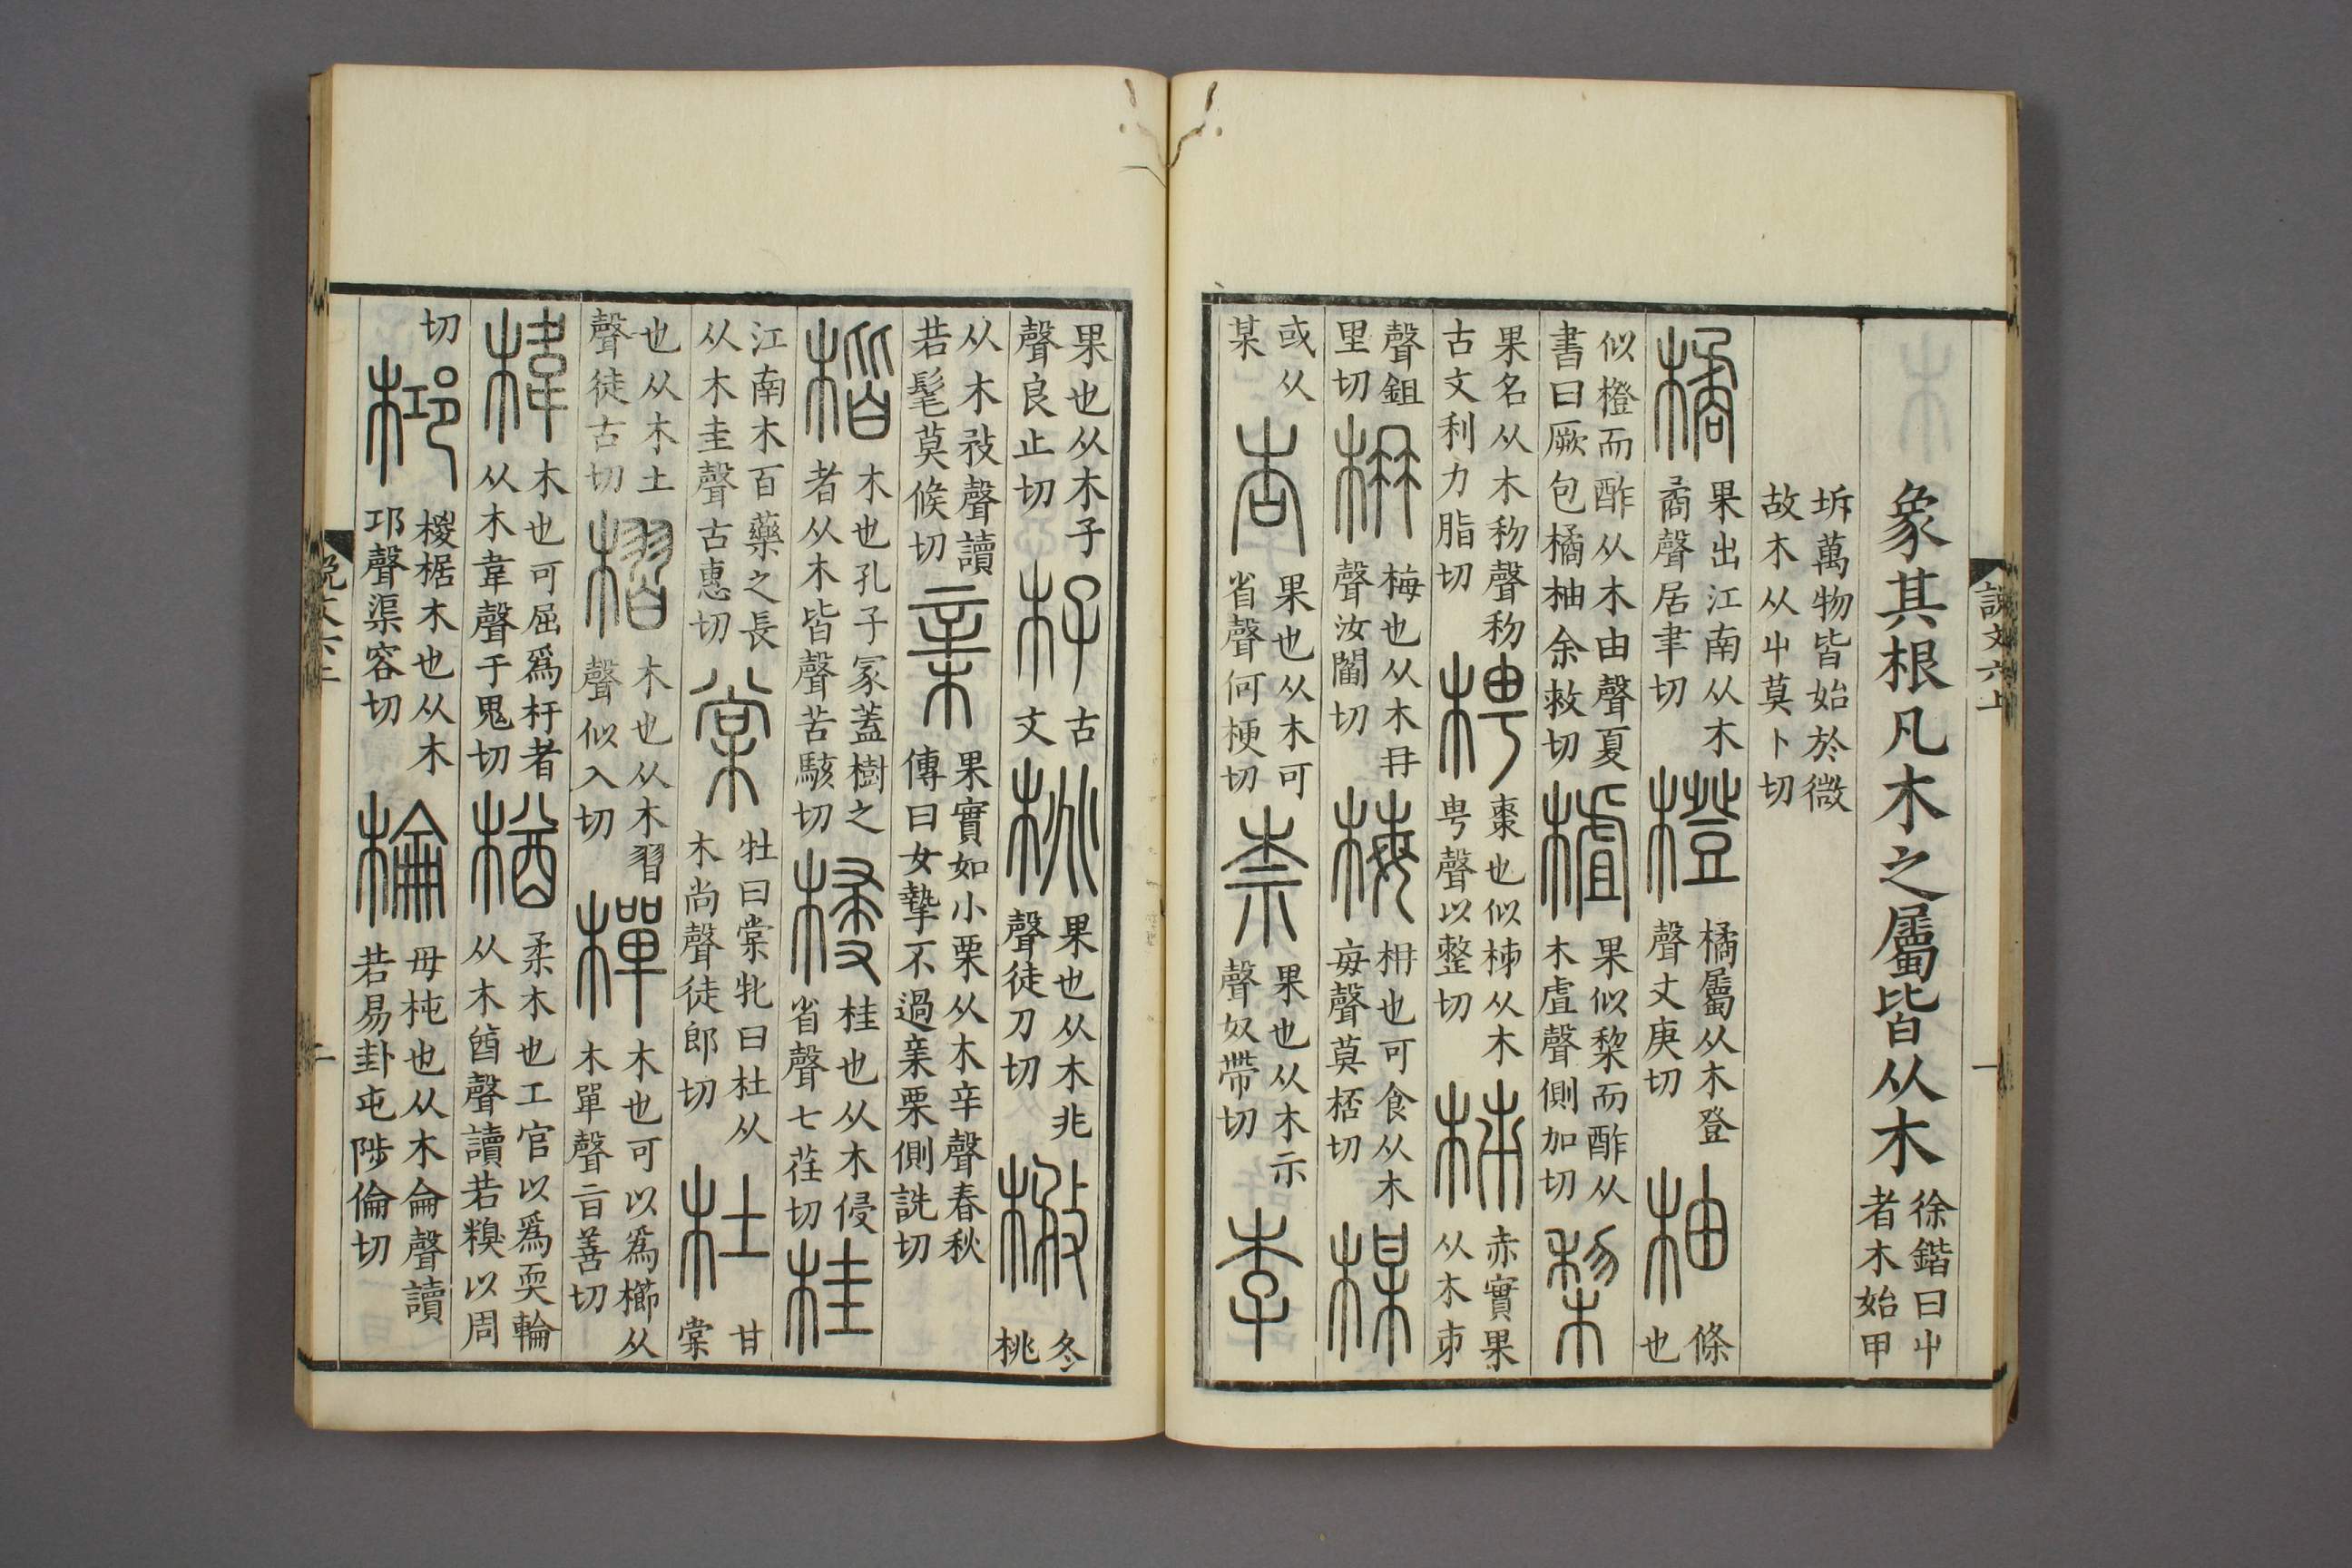 說文六上 一
象其根凡木之屬皆从木徐鍇曰屮者木始甲
坼萬物皆始於微故木从屮莫卜切
橘果出江南从木矞聲居聿切橙橘屬从木登聲丈庚切柚條也
似橙而酢从木由聲夏書曰厥包橘柚余救切樝果似棃而酢从木虘聲側加切棃
果名从木𥝢聲𥝢古文利力脂切梬棗也似柹从木甹聲以整切柹赤實果从木𠂔
聲鉏里切枏梅也从木冄聲汝閻切梅枏也可食从木每聲莫桮切楳
或从某杏果也从木可省聲何梗切柰果也从木示聲奴帶切李
果也从木子聲良止切杍古文桃果也从木兆聲徒刀切𣒫冬桃
从木敄聲讀若髦莫候切亲果實如小栗从木辛聲春秋傳曰女摯不過亲栗側詵切
楷木也孔子冢蓋樹之者从木皆聲苦駭切梫桂也从木侵省聲七荏切桂
江南木百藥之長从木圭聲古惠切棠牡曰棠牝曰杜从木尚聲徒郎切杜甘棠
也从木土聲徒古切槢木也从木習聲似入切樿木也可以爲櫛从木單聲旨善切
椲木也可屈爲杅者从木韋聲于鬼切楢柔木也工官以爲耎輪从木酋聲讀若糗以周
切桏椶椐木也从木邛聲渠容切棆母杶也从木侖聲讀若易卦屯陟倫切
說文六上 二